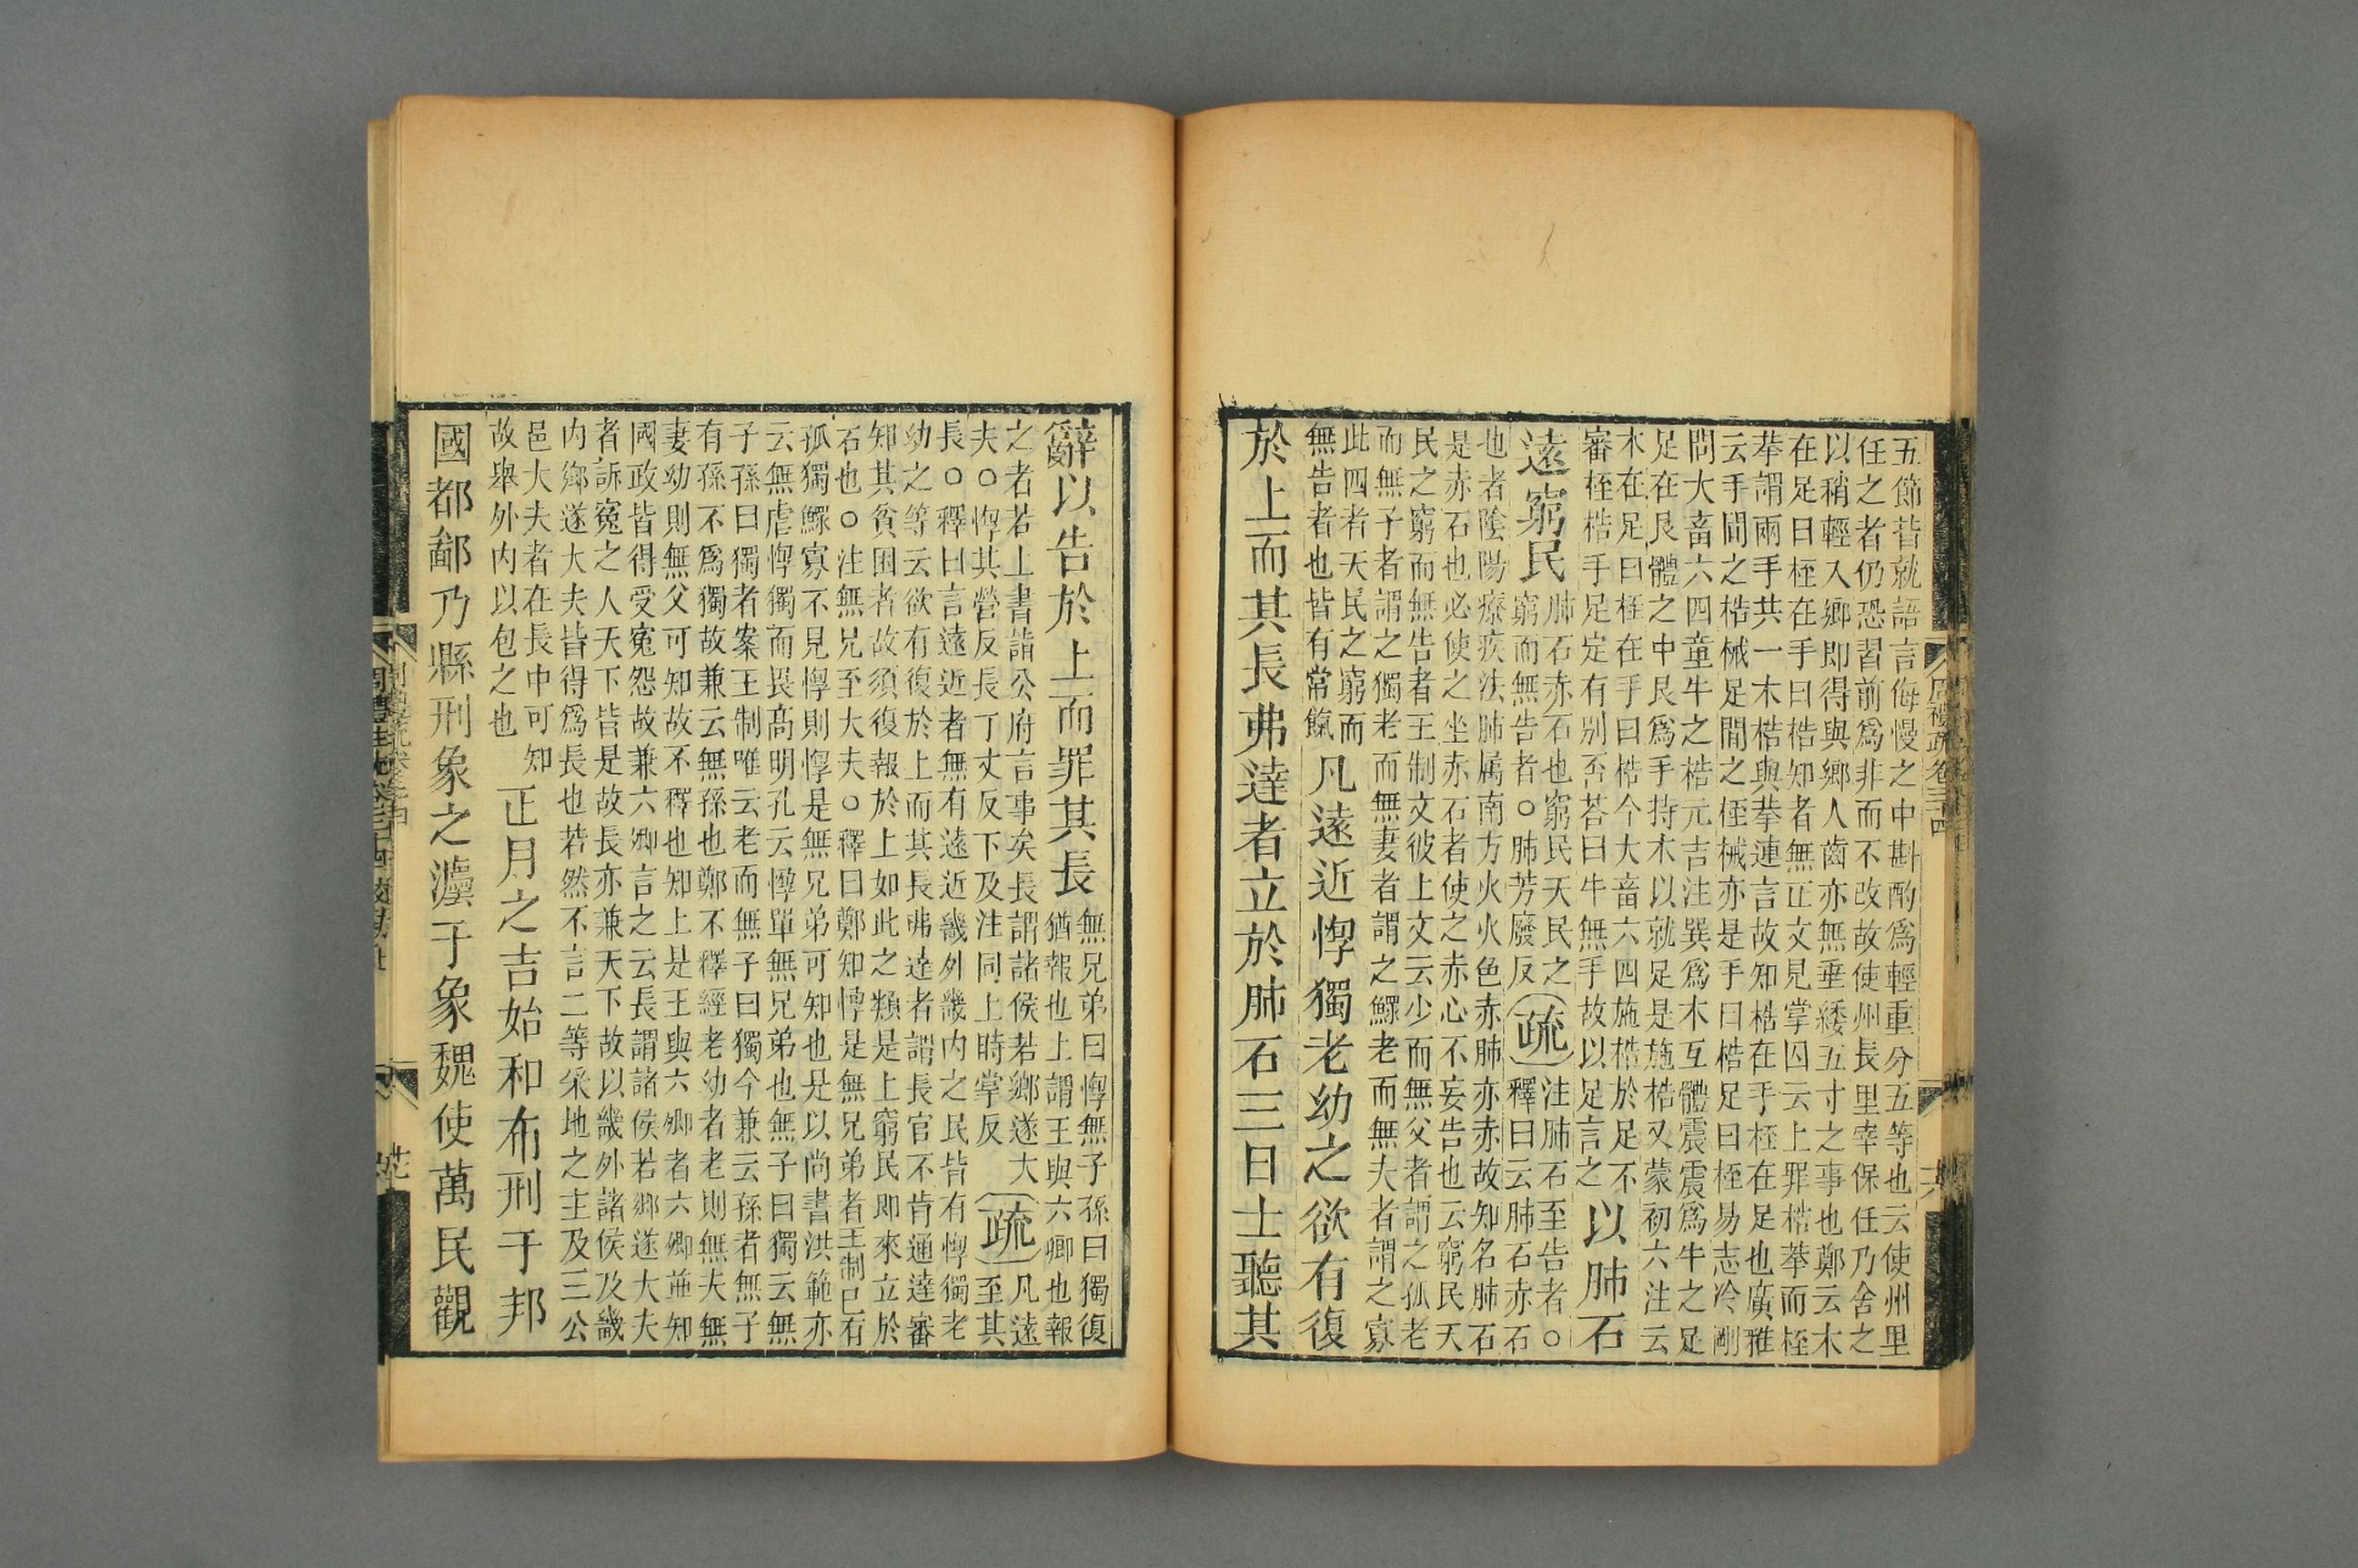 五節皆就語言侮慢之中斟酌爲輕重分五等也云使州里
任之者仍恐習前爲非而不改故使州長里宰保任乃舍之
以稍輕入鄉即得與鄉人齒亦無垂緌五寸之事也鄭云木
在足曰桎在手曰梏知者無正文見掌囚云上罪梏拲而桎
拲謂兩手共一木梏與拲連言故知梏在手桎在足也廣雅
云手閒之梏械足閒之侄械亦是手曰梏足曰桎易志冷剛
問大畜六四童牛之梏元吉注巽爲木互體震震爲牛之足
足在艮體之中艮爲手持木以就足是施梏又蒙初六注云
木在足曰桎在手曰梏今大畜六四施梏於足不
審桎梏手足定有別否荅曰牛無手故以足言之
以肺石
遠窮民
肺石赤石也窮民天民之
窮而無告者○肺芳廢反
疏
注肺石至告者○
釋曰云肺石赤石
也者陰陽療疾法肺属南方火火色赤肺亦赤故知名肺石
是赤石也必使之坐赤石者使之赤心不妄告也云窮民天
民之窮而無告者王制文彼上文云少而無父者謂之孤老
而無子者謂之獨老而無妻者謂之鰥老而無夫者謂之寡
此四者天民之窮而
無告者也皆有常餼
凡遠近惸獨老幼之欲有復
於上而其長弗達者立於肺石三日士聽其
周禮疏卷三十四
辭以告於上而罪其長
無兄弟曰惸無子孫曰獨復
猶報也上謂王與六卿也報
之者若上書詣公府言事矣長謂諸侯若鄉遂大
夫○惸其營反長丁丈反下及注同上時掌反
疏
凡遠
至其
長○釋曰言遠近者無有遠近畿外畿内之民皆有惸獨老
幼之等云欲有復於上而其長弗達者謂長官不肯通達審
知其貧困者故須復報於上如此之類是上窮民即來立於
石也○注無兄至大夫○釋曰鄭知惸是無兄弟者王制已有
孤獨鰥寡不見惸則惸是無兄弟可知也是以尚書洪範亦
云無虐惸獨而畏髙明孔云惸單無兄弟也無子曰獨云無
子孫曰獨者案王制唯云老而無子曰獨今兼云孫者無子
有孫不爲獨故兼云無孫也鄭不釋經老幼者老則無夫無
妻幼則無父可知故不釋也知上是王與六卿者六卿並知
國政皆得受寃怨故兼六卿言之云長謂諸侯若鄉遂大夫
者訴寃之人天下皆是故長亦兼天下故以畿外諸侯及畿
内鄉遂大夫皆得爲長也若然不言二等采地之主及三公
邑大夫者在長中可知
故舉外内以包之也
正月之吉始和布刑于邦
國都鄙乃縣刑象之灋于象魏使萬民觀